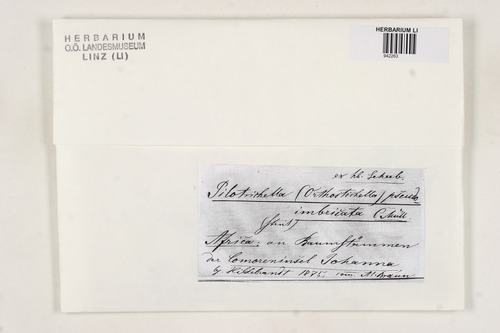 HERBARIUM
O.Ö. LANDESMUSEUM
LINZ (LI)
HERBARIUM LI
942203
ex hb. Schub.
Pilotrichella (Orthostichella) pseudo
imbricata C. Müll.
Africa: an Baumstämmen
der Comoreninsel Johanna
Hildebrandt 1875.